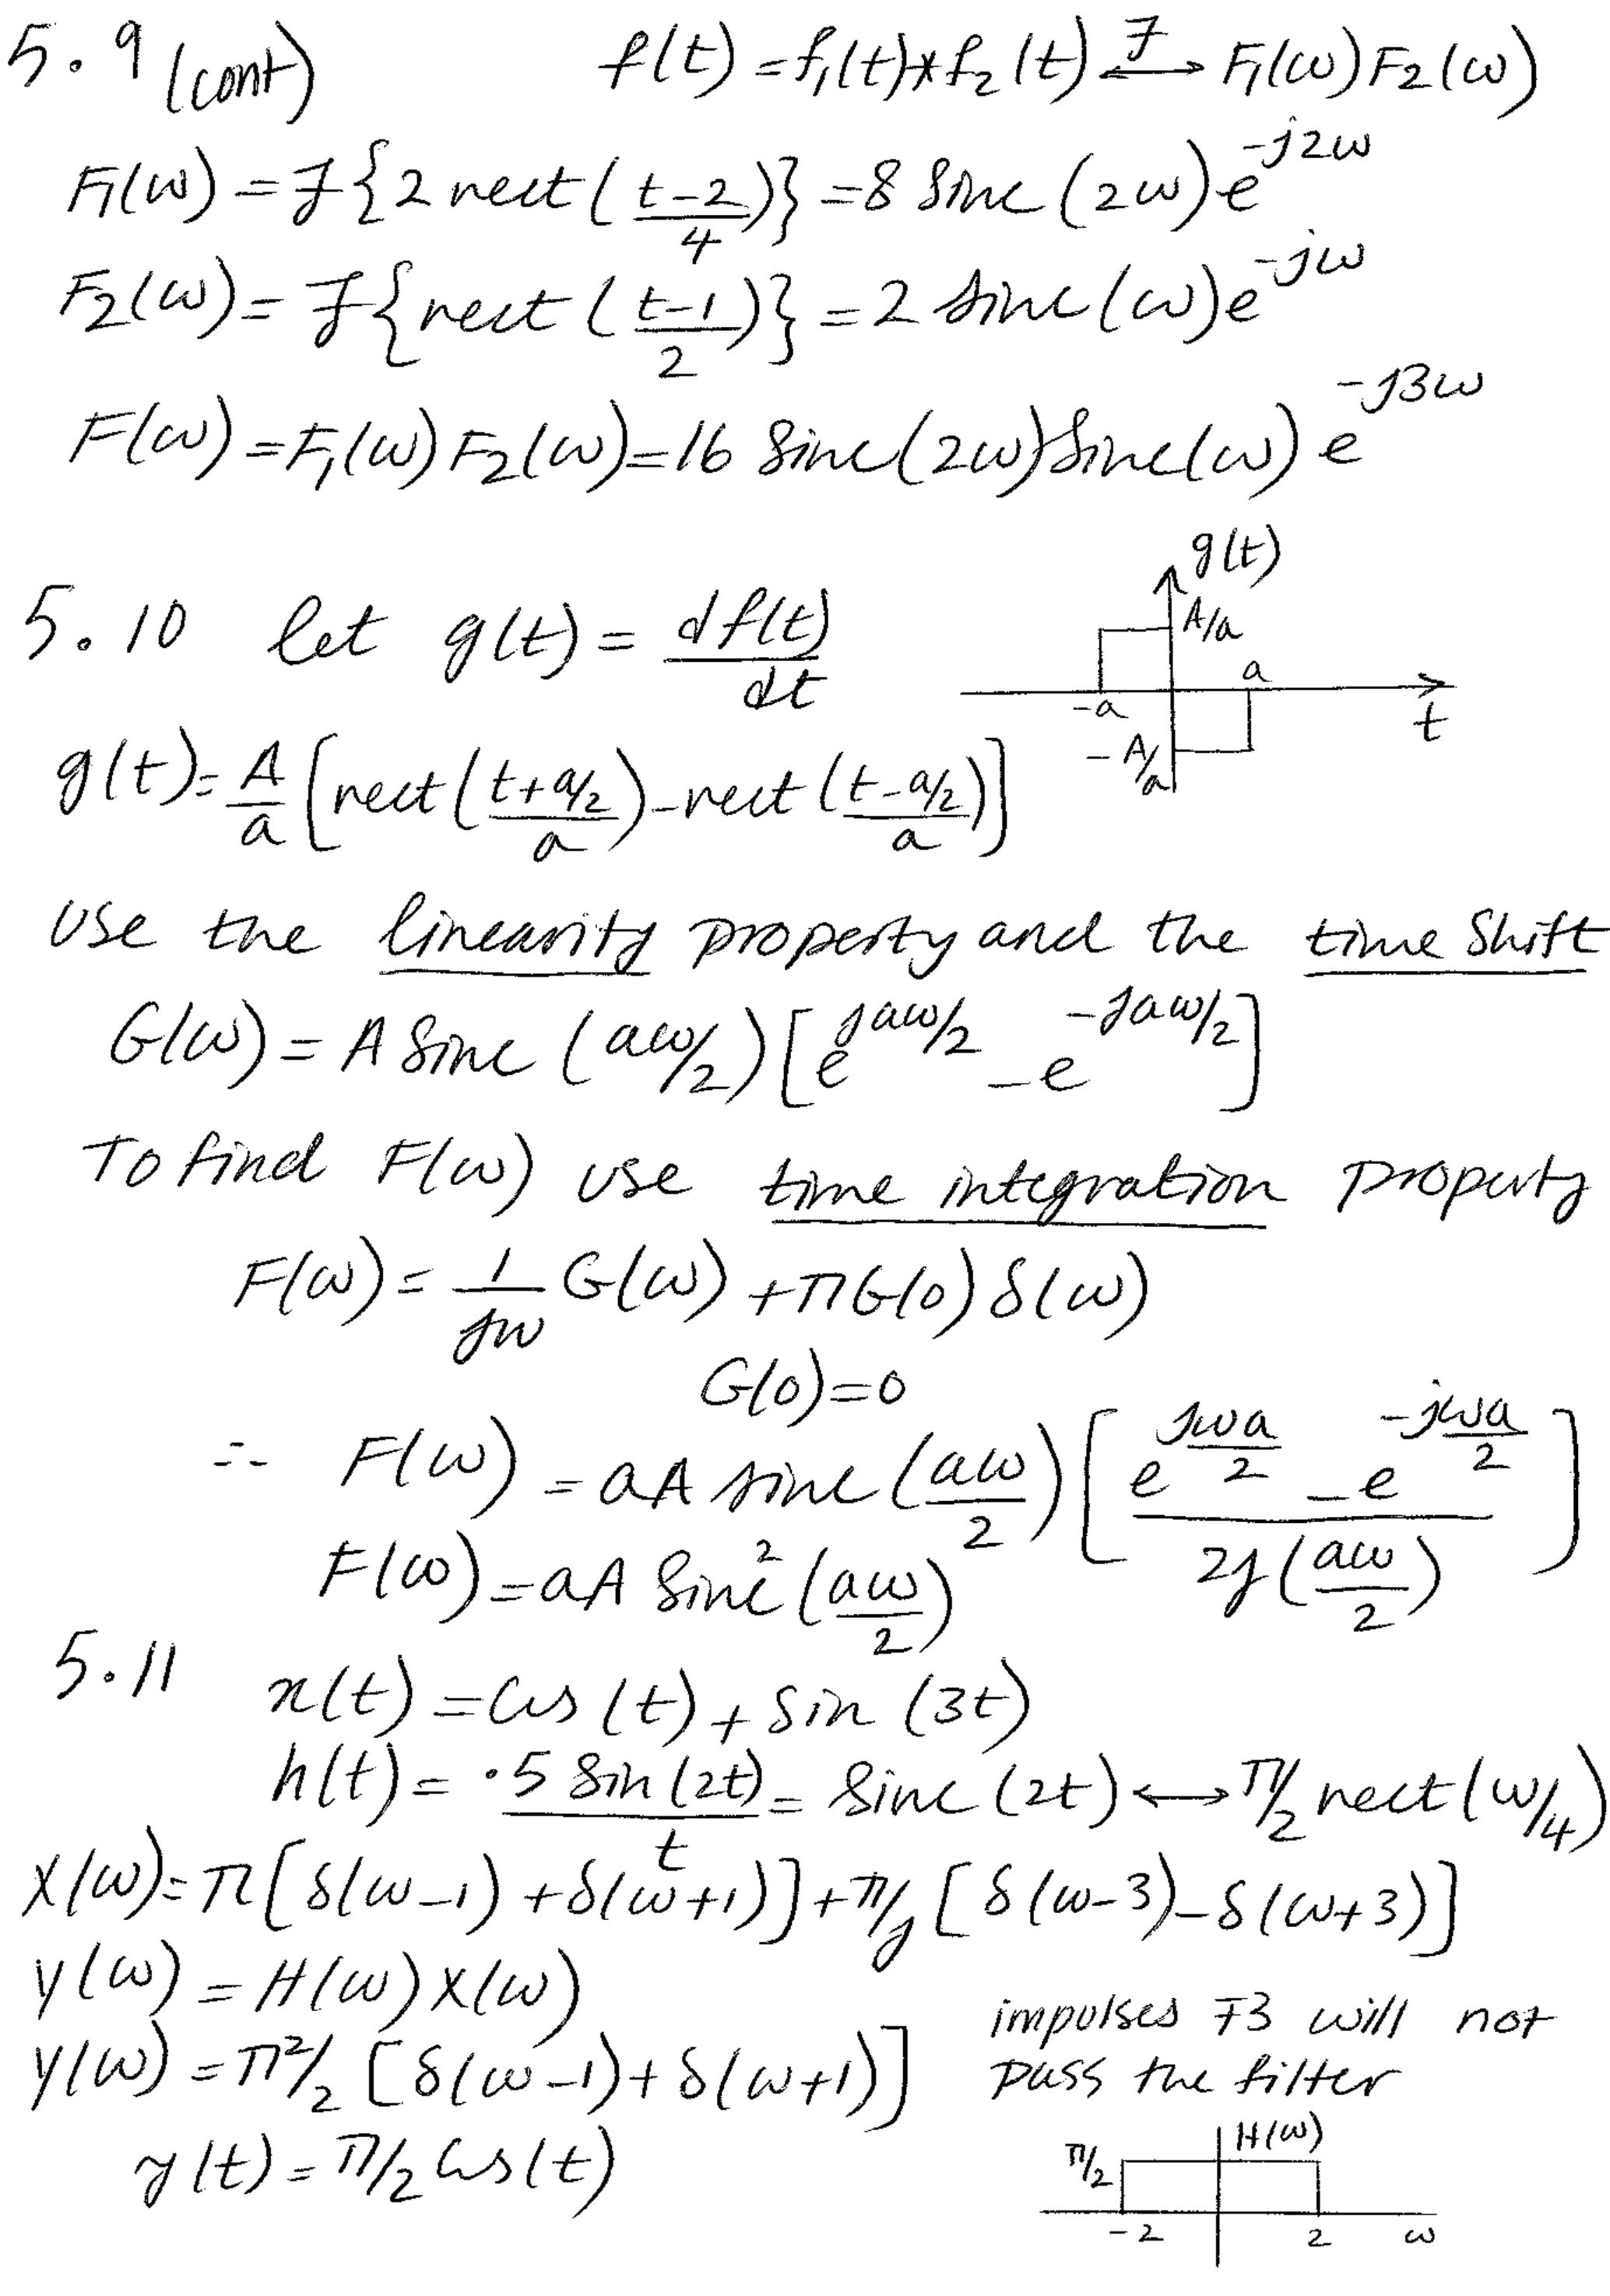 5.9 (cont) f(t) = f₁(t)*f₂(t) ⟷ℱ F₁(ω)F₂(ω)
F₁(ω) = ℱ{2 rect((t-2)/4)} = 8 Sinc(2ω)e^(-j2ω)
F₂(ω) = ℱ{rect((t-1)/2)} = 2 sinc(ω)e^(-jω)
F(ω) = F₁(ω)F₂(ω) = 16 Sinc(2ω)Sinc(ω) e^(-j3ω)
g(t)
A/a
a
-a
t
-A/a
5.10 let g(t) = df(t)/dt
g(t) = A/a [rect((t+a/2)/a) - rect((t-a/2)/a)]
Use the linearity property and the time Shift
G(ω) = A Sinc(aω/2)[e^(jaω/2) - e^(-jaω/2)]
To find F(ω) use time integration property
F(ω) = 1/jω G(ω) + πG(0)δ(ω)
G(0)=0
∴ F(ω) = aA sinc(aω/2)[(e^(jωa/2) - e^(-jωa/2))/(2j(aω/2))]
F(ω) = aA Sinc²(aω/2)
5.11 x(t) = Cos(t) + Sin(3t)
h(t) = .5 Sin(2t)/t = Sinc(2t) ⟷ π/2 rect(ω/4)
X(ω) = π[δ(ω-1) + δ(ω+1)] + π/j [δ(ω-3) - δ(ω+3)]
Y(ω) = H(ω)X(ω)
Y(ω) = π²/2 [δ(ω-1) + δ(ω+1)]
y(t) = π/2 Cos(t)
impulses ∓3 will not
pass the filter
H(ω)
π/2
-2 2 ω